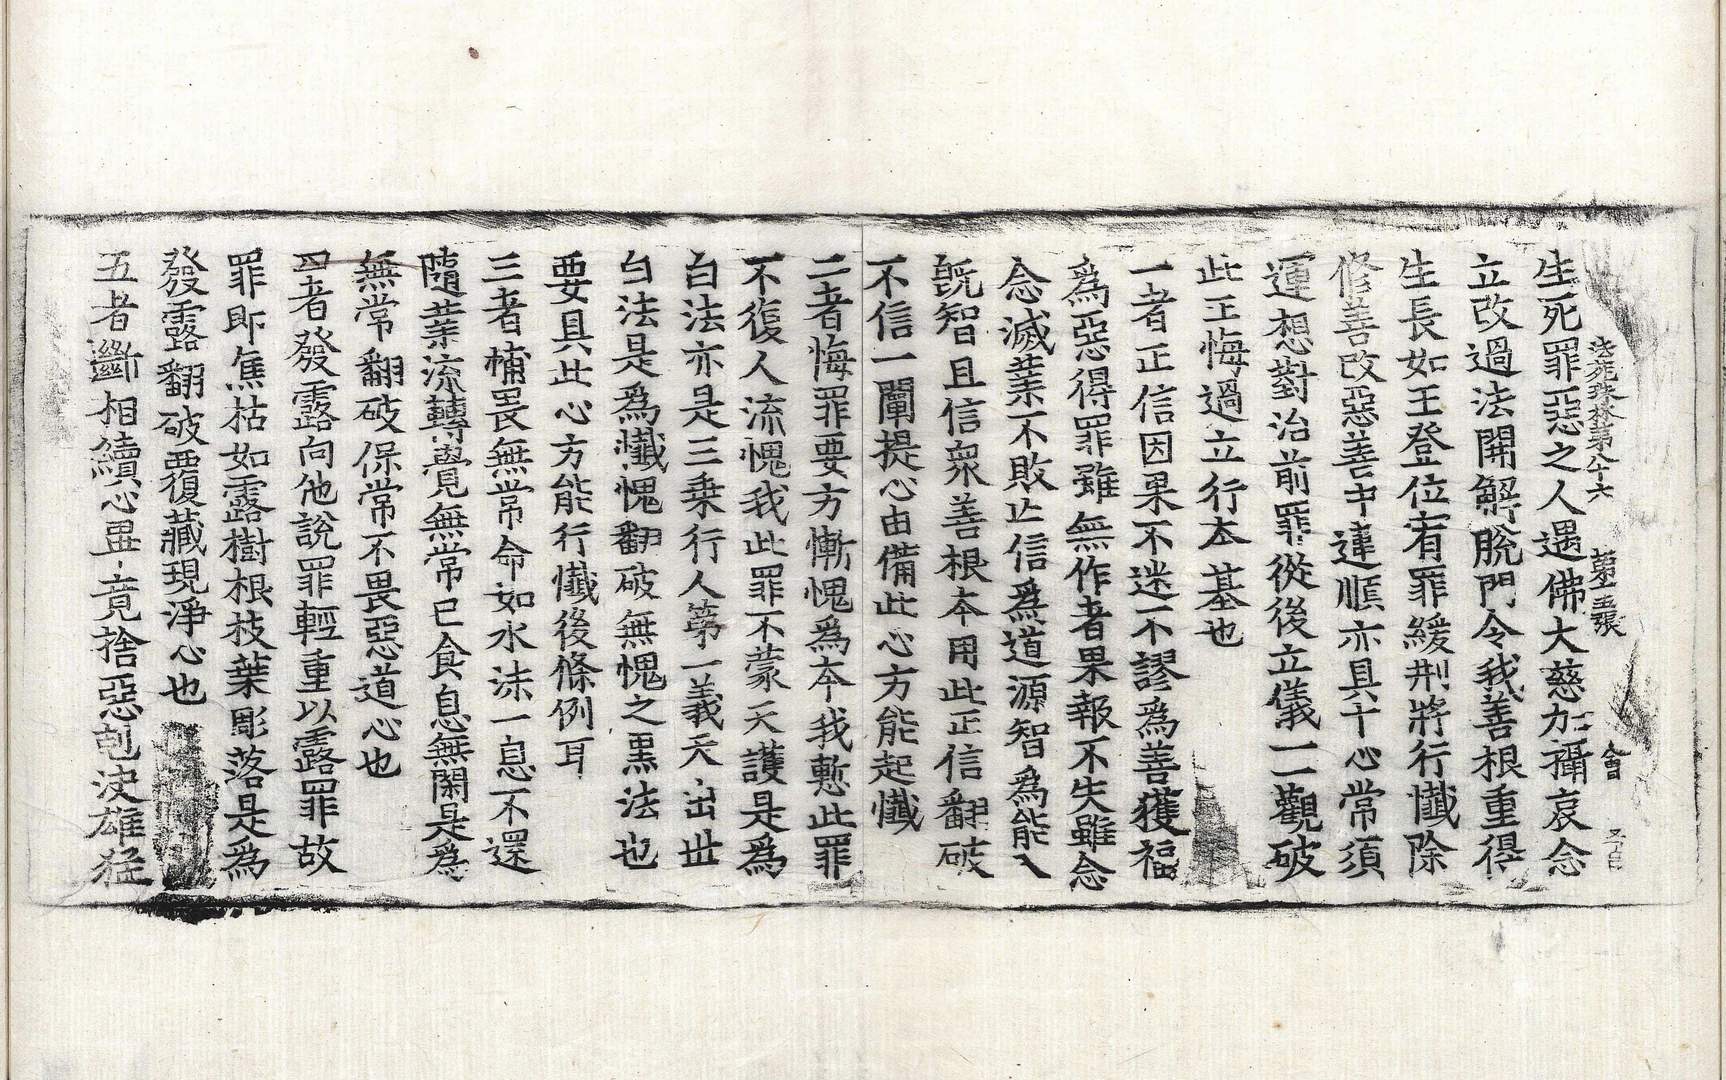 法苑珠林第八十六 第五張 會
生死罪惡之人遇佛大慈加攝哀念
立改過法開解脫門令我善根重得
生長如王登位宥罪緩刑將行懺除
修善改惡善中違順亦具十心常須
運想對治前罪從後立儀一一觀破
此王悔過立行本基也
一者正信因果不迷不謬爲善獲福
爲惡得罪雖無作者果報不失雖念
念滅業不敗亡信爲道源智爲能入
既智且信衆善根本用此正信翻破
不信一闡提心由備此心方能起懺
二者悔罪要方慚愧爲本我慙此罪
不復人流愧我此罪不蒙天護是爲
白法亦是三乗行人第一義天出世
白法是爲懺愧翻破無愧之黒法也
要具此心方能行懺後條例耳
三者怖畏無常命如水沫一息不還
隨業流轉覺無常已食息無閑是爲
無常翻破保常不畏惡道心也
四者發露向他說罪輕重以露罪故
罪即焦枯如露樹根枝葉彫落是爲
發露翻破覆藏現淨心也
五者斷相續心畢竟捨惡剋決雄猛